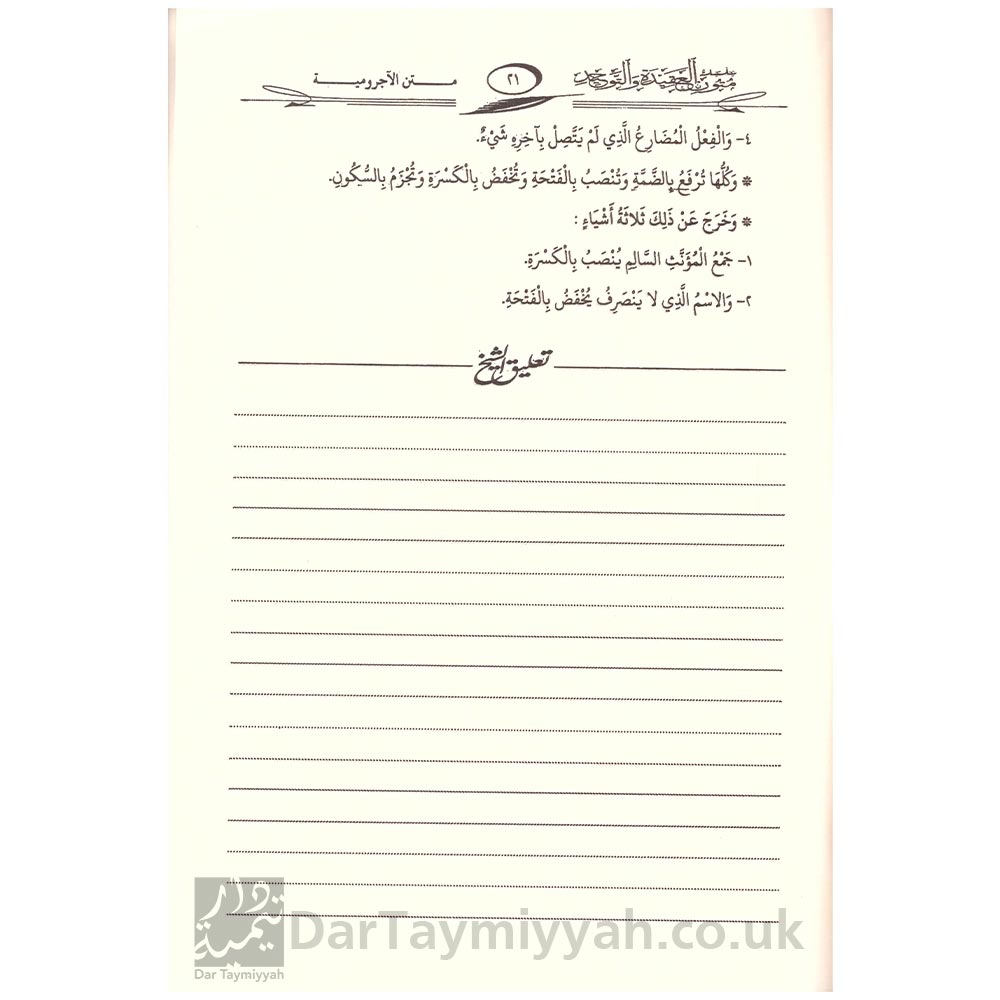 سلسلة متون العقيدة والتوحيد
٢١
متن الآجرومية
٤- وَالْفِعْلُ الْمُضَارِعُ الَّذِي لَمْ يَتَّصِلْ بِآخِرِهِ شَيْءٌ.
* وَكُلُّهَا تُرْفَعُ بِالضَّمَّةِ وَتُنْصَبُ بِالْفَتْحَةِ وَتُخْفَضُ بِالْكَسْرَةِ وَتُجْزَمُ بِالسُّكُونِ.
* وَخَرَجَ عَنْ ذَلِكَ ثَلاثَةُ أَشْيَاءٍ :
١- جَمْعُ الْمُؤَنَّثِ السَّالِمِ يُنْصَبُ بِالْكَسْرَةِ.
٢- وَالاسْمُ الَّذِي لا يَنْصَرِفُ يُخْفَضُ بِالْفَتْحَةِ.
تعليق الشيخ
دار تيمية
Dar Taymiyyah
DarTaymiyyah.co.uk